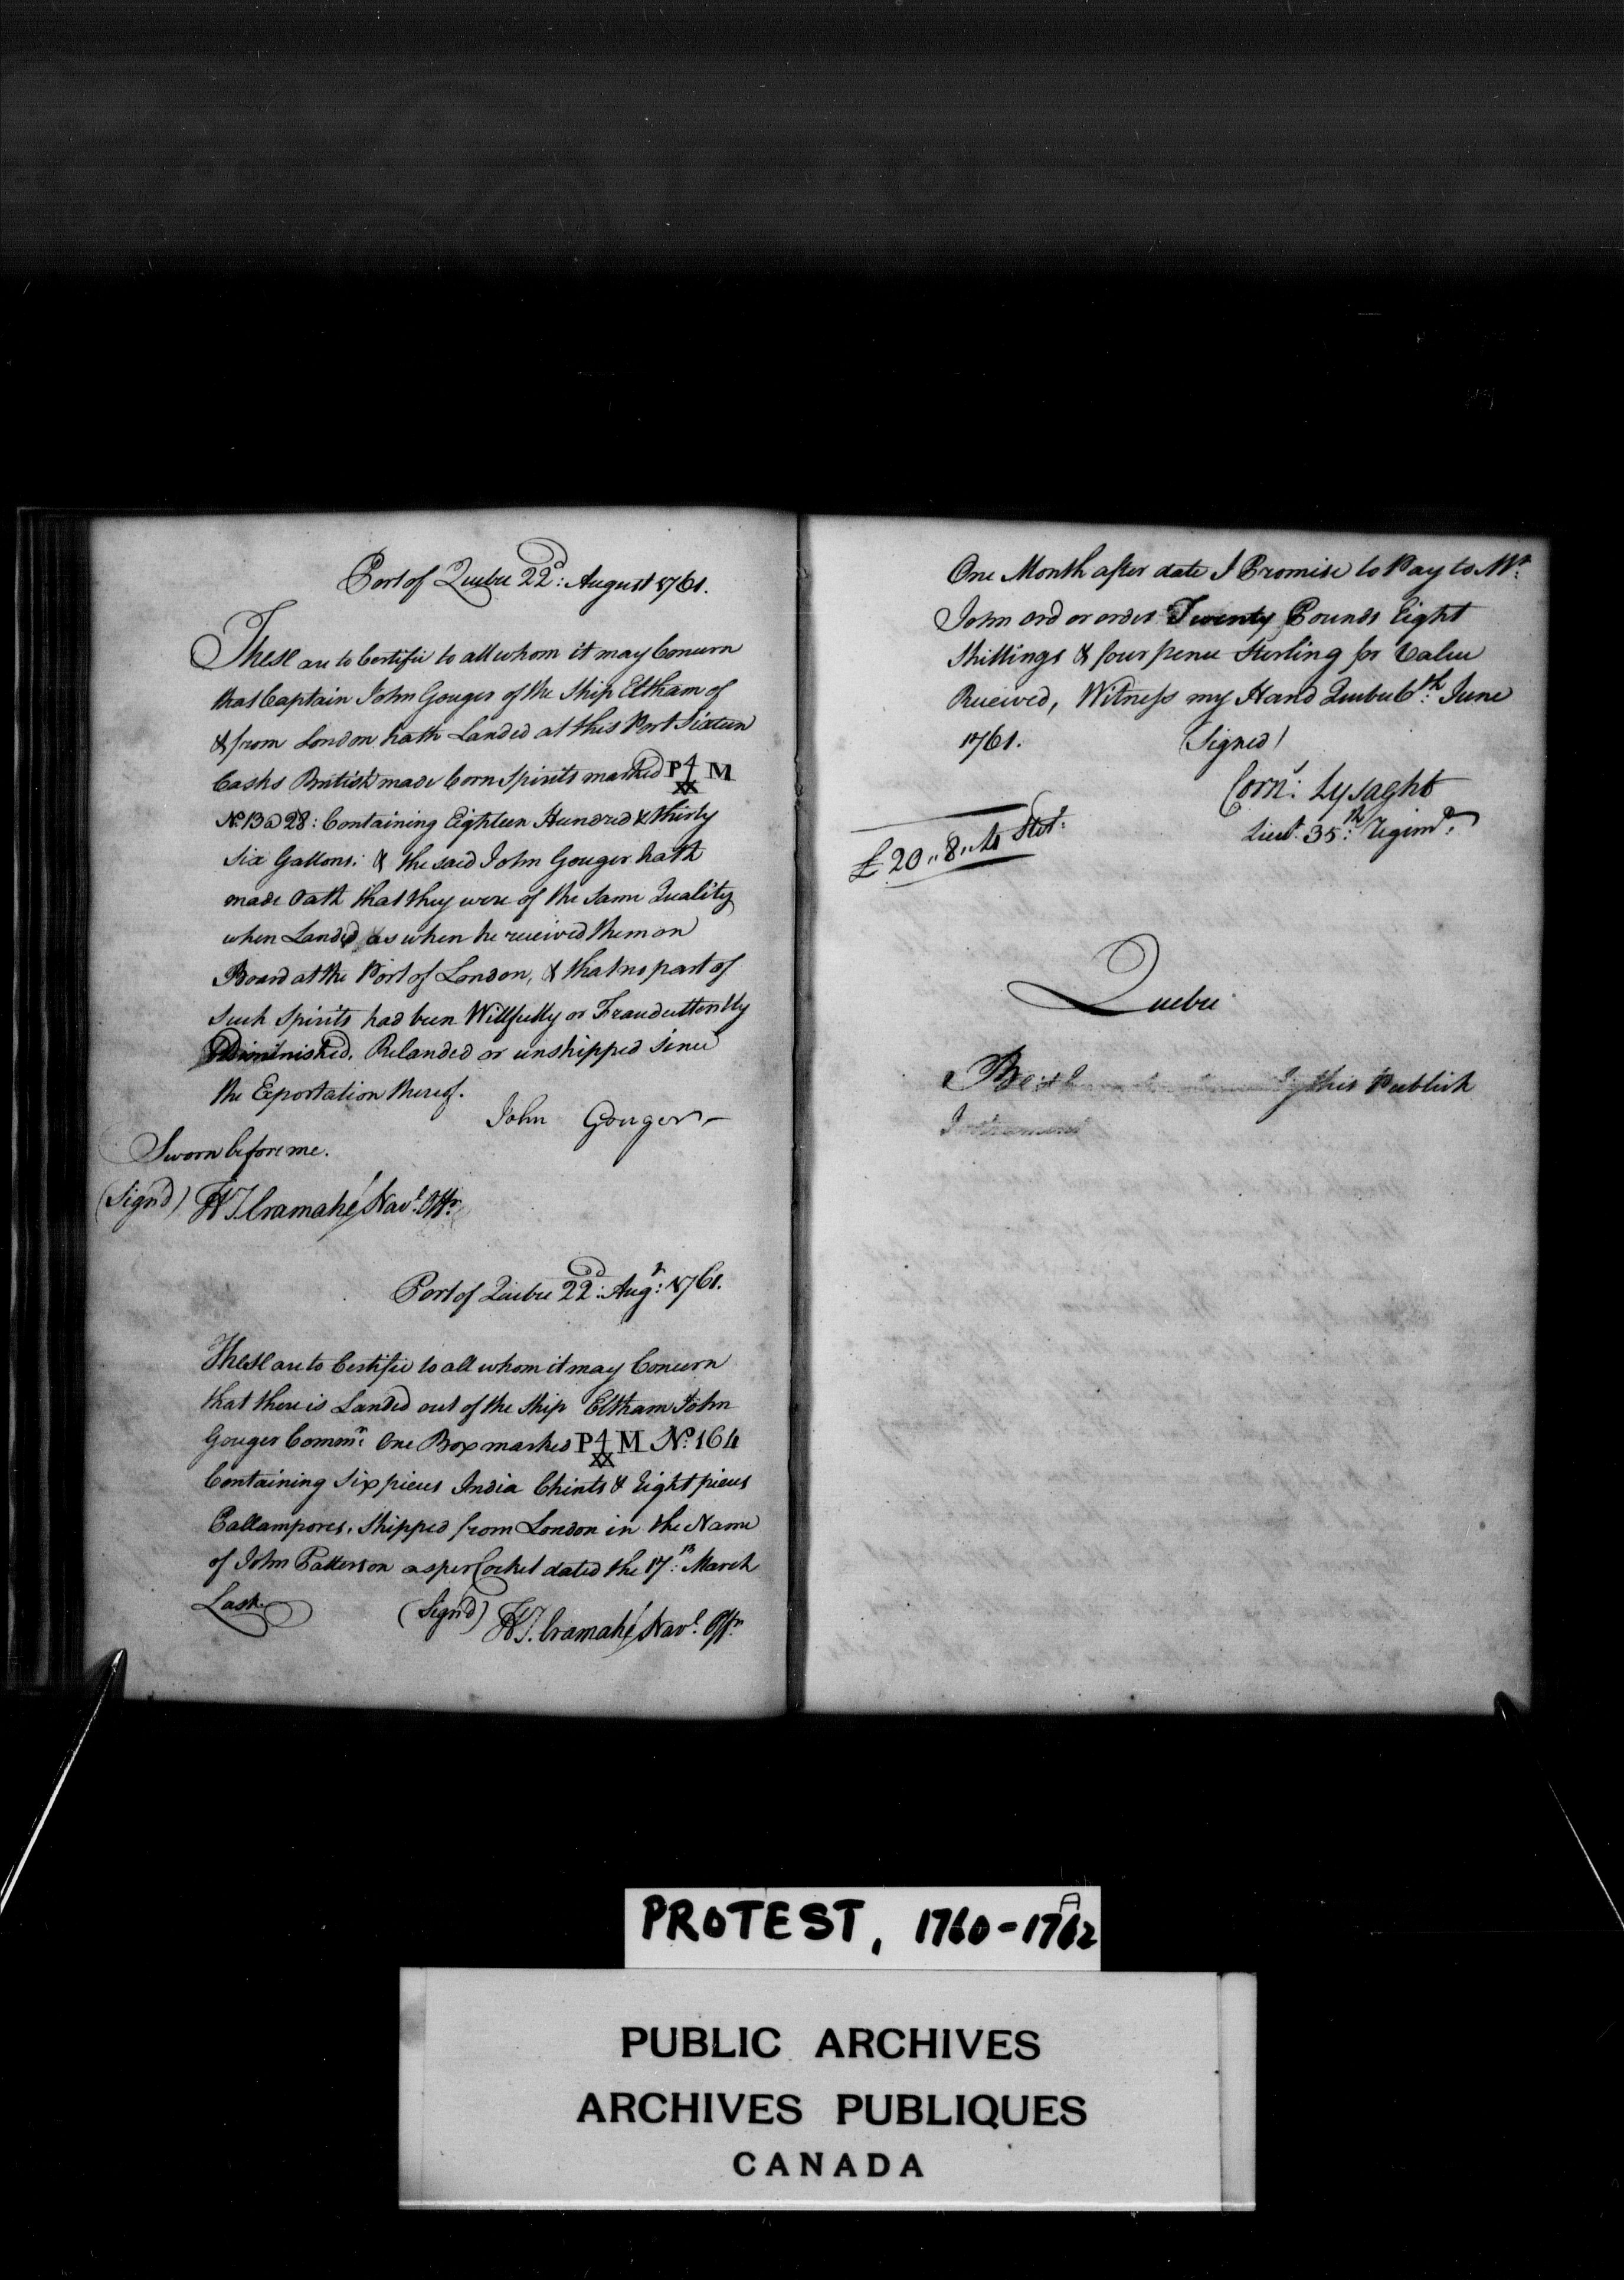 Port of Quebec 22d: August 1761.
These are to Certifie to all whom it may Concern
that Captain John Gouger of the Ship Eltham of
& from London hath Landed at this Port Sixteen
Casks British made Corn Spirits marked P4M
No. 13 a 28: Containing Eighteen Hundred & thirty
Six Gallons: & the said John Gouger hath
made Oath that they were of the same Quality
when Landed as when he received them on
Board at the Port of London, & that no part of
such Spirits had been Willfully or Frauduttently
Diminished, Relanded or unshipped since
the Exportation thereof.
John Gouger
Sworn before me.
(Signd) H T. Cramahé Navl. Offr.
Port of Quebec 22d: Augt: 1761.
These are to Certifie to all whom it may Concern
that there is Landed out of the Ship Eltham John
Gouger Comonr: One Box marked P4M No. 164
Containing Six pieces India Chints & Eight pieces
Callampores, Shipped from London in the Name
of John Patterson as per Cocket dated the 17th: March
Last.
(Signd) H T. Cramahé Navl. Offr.
One Month after date I Promise to Pay to Mr:
John Ord or order Twenty Pounds Eight
Shillings & four pence Sterling for Value
Received, Witness my Hand Quebec 6th: June
1761. (Signed)
Corns: Lysaght
Lieut. 35th: Regimt:
£ 20 " 8 " 4 Stet:
Quebec
this Publick
Instrument
PROTEST, 1760-1762
A
PUBLIC ARCHIVES
ARCHIVES PUBLIQUES
CANADA